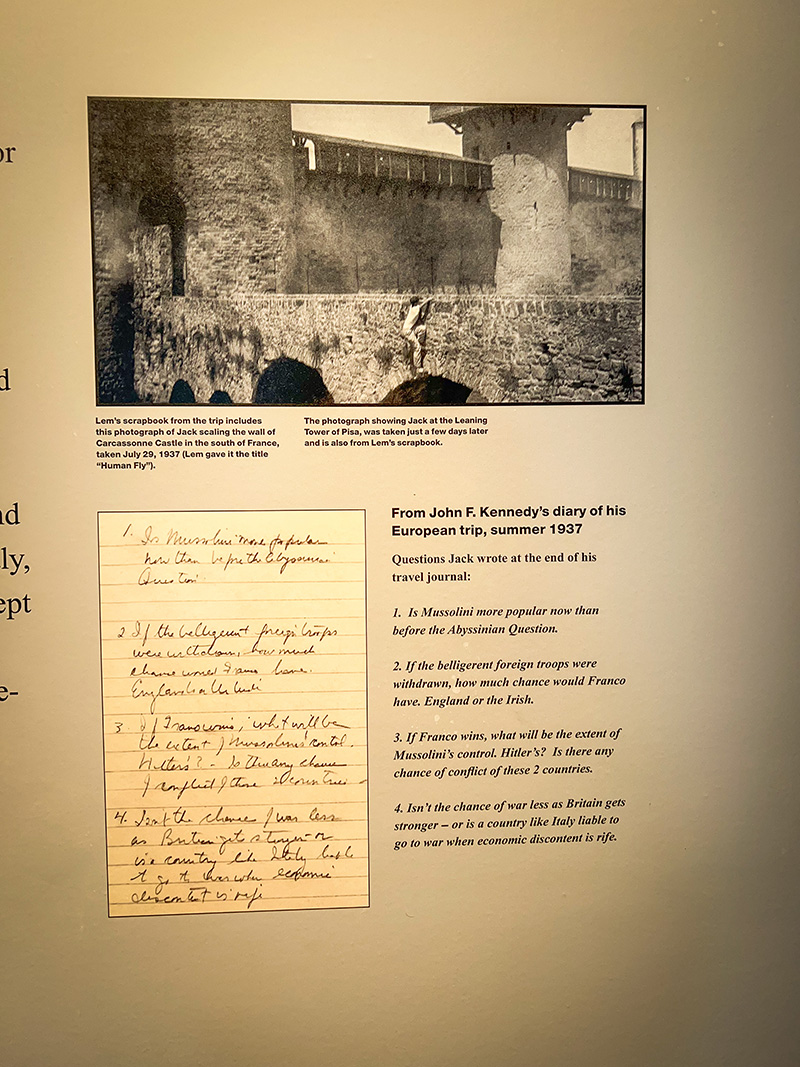 or
d
nd
ly,
ept
e-
Lem's scrapbook from the trip includes
this photograph of Jack scaling the wall of
Carcassonne Castle in the south of France,
taken July 29, 1937 (Lem gave it the title
"Human Fly").
The photograph showing Jack at the Leaning
Tower of Pisa, was taken just a few days later
and is also from Lem's scrapbook.
1. Is Mussolini more popular
now than before the Abyssinian
Question
2 If the belligerent foreign troops
were withdrawn, how much
chance would Franco have.
England or the
3. If Franco wins, what will be
the extent of Mussolini's control.
Hitler's? - Is there any chance
of conflict of these 2 countries
4. Isn't the chance of war less
as Britain gets stronger - or
is a country like Italy liable
to go to war when economic
discontent is rife
From John F. Kennedy's diary of his
European trip, summer 1937
Questions Jack wrote at the end of his
travel journal:
1. Is Mussolini more popular now than
before the Abyssinian Question.
2. If the belligerent foreign troops were
withdrawn, how much chance would Franco
have. England or the Irish.
3. If Franco wins, what will be the extent of
Mussolini's control. Hitler's? Is there any
chance of conflict of these 2 countries.
4. Isn't the chance of war less as Britain gets
stronger – or is a country like Italy liable to
go to war when economic discontent is rife.